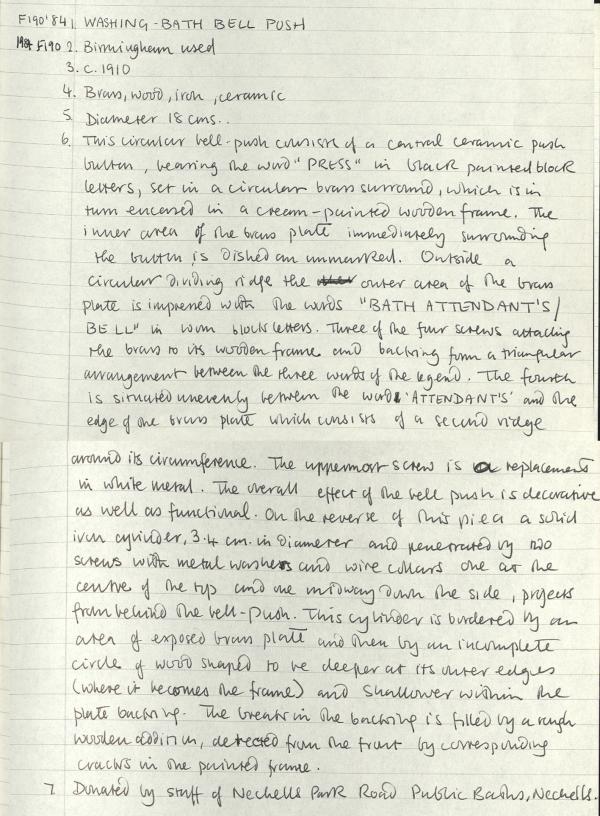 F190'84 1. WASHING-BATH BELL PUSH
1984 F190 2. Birmingham used
3. c. 1910
4. Brass, wood, iron, ceramic
5. Diameter 18 cms..
6. This circular bell-push consists of a central ceramic push
button, bearing the word "PRESS" in black painted block
letters, set in a circular brass surround, which is in
turn encased in a cream-painted wooden frame. The
inner area of the brass plate immediately surrounding
the button is dished an unmarked. Outside a
circular dividing ridge the outer area of the brass
plate is impressed with the words "BATH ATTENDANT'S/
BELL" in worn block letters. Three of the four screws attaching
the brass to its wooden frame and backing form a triangular
arrangement between the three words of the legend. The fourth
is situated unevenly between the word 'ATTENDANT'S' and the
edge of the brass plate which consists of a second ridge
around its circumference. The uppermost screw is a replacement
in white metal. The overall effect of the bell push is decorative
as well as functional. On the reverse of this piece a solid
iron cylinder, 3.4 cm. in diameter and penetrated by two
screws with metal washers and wire collars one at the
centre of the top and one midway down the side, projects
from behind the bell-push. This cylinder is bordered by an
area of exposed brass plate and then by an incomplete
circle of wood shaped to be deeper at its outer edges
(where it becomes the frame) and shallower within the
plate backing. The break in the backing is filled by a rough
wooden addition, detected from the front by corresponding
cracks in the painted frame.
7. Donated by staff of Nechells Park Road Public Baths, Nechells.